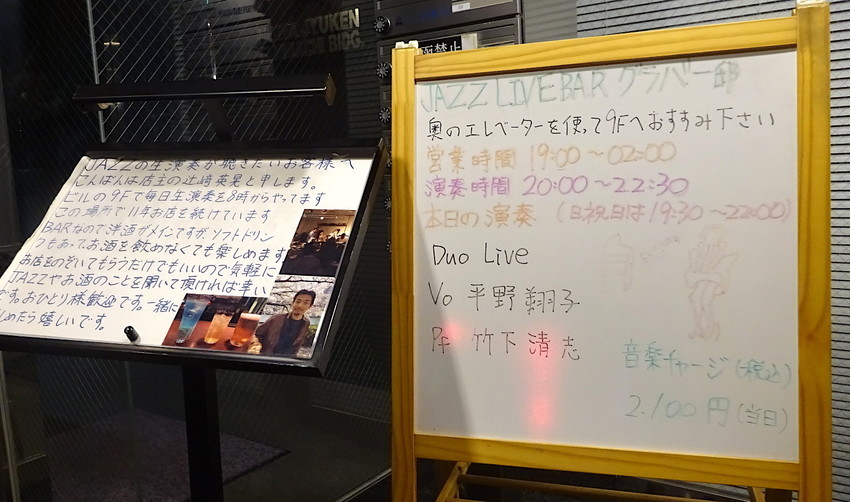 JYUKEN
BLDG.
禁止
JAZZの生演奏が聴きたいお客様へ
こんばんは店主の辻﨑英晃と申します。
ビルの9Fで毎日生演奏を8時からやってます
この場所で11年お店を続けています
BARなので洋酒がメインですがソフトドリン
つもあってお酒を飲めなくても楽しめます
お店をのぞいてもらうだけでもいいので気軽に
JAZZやお酒のことを聞いて頂ければ幸い
です。おひとり様歓迎です。一緒に
しめたら嬉しいです。
JAZZ LIVE BAR グラバー邸
奥のエレベーターを使って9Fへおすすみ下さい
営業時間 19:00〜02:00
演奏時間 20:00〜22:30
本日の演奏 (日祝日は19:30〜22:00)
Duo Live
Vo 平野翔子
Pf 竹下清志
音楽チャージ(税込)
2.100円(当日)